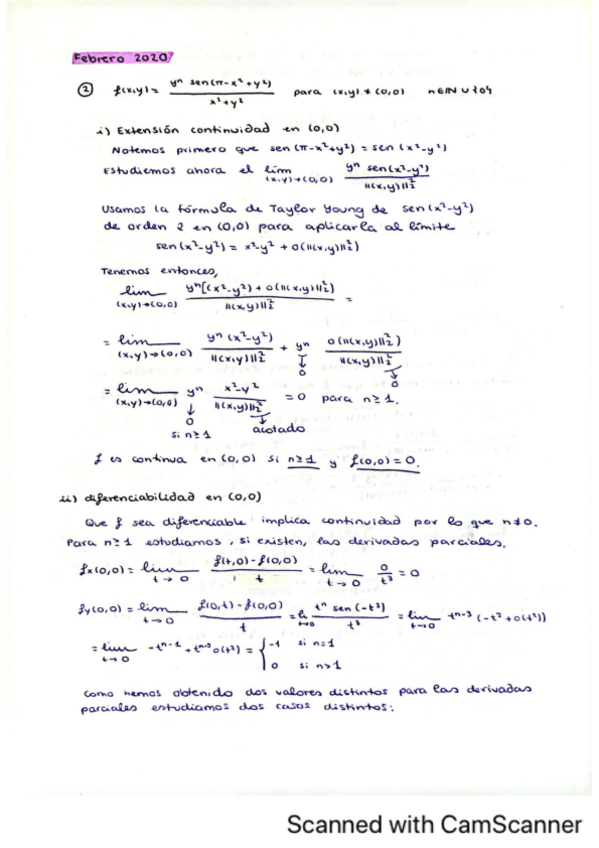 Febrero 2020
② f(x,y) = yⁿ sen(π-x²+y²) / x²+y² para (x,y) ≠ (0,0) n∈ℕ∪{0}
i) Extensión continuidad en (0,0)
Notemos primero que sen(π-x²+y²) = sen(x²-y²)
Estudiemos ahora el lim (x,y)→(0,0) yⁿ sen(x²-y²) / ||(x,y)||₂²
Usamos la fórmula de Taylor Young de sen(x²-y²)
de orden 2 en (0,0) para aplicarla al límite
sen(x²-y²) = x²-y² + o(||(x,y)||₂²)
Tenemos entonces,
lim (x,y)→(0,0) yⁿ[(x²-y²) + o(||(x,y)||₂²) / ||(x,y)||₂² =
= lim (x,y)→(0,0) yⁿ(x²-y²) / ||(x,y)||₂² + yⁿ o(||(x,y)||₂²) / ||(x,y)||₂²
↓ 0 ↘ 0
= lim (x,y)→(0,0) yⁿ x²-y² / ||(x,y)||₂² = 0 para n≥1.
↓ 0 si n≥1 ↘ acotado
f es continua en (0,0) si n≥1 y f(0,0)=0.
ii) diferenciabilidad en (0,0)
Que f sea diferenciable implica continuidad por lo que n≠0.
Para n≥1 estudiamos, si existen, las derivadas parciales.
fx(0,0) = lim t→0 f(t,0)-f(0,0) / t = lim t→0 0 / t³ = 0
fy(0,0) = lim t→0 f(0,t)-f(0,0) / t = li t→0 tⁿ sen(-t²) / t³ = lim t→0 tⁿ⁻³(-t²+o(t²))
= lim t→0 -tⁿ⁻¹ + tⁿ⁻³ o(t²) = { -1 si n=1
0 si n>1
Como hemos obtenido dos valores distintos para las derivadas
parciales estudiamos dos casos distintos:
Scanned with CamScanner